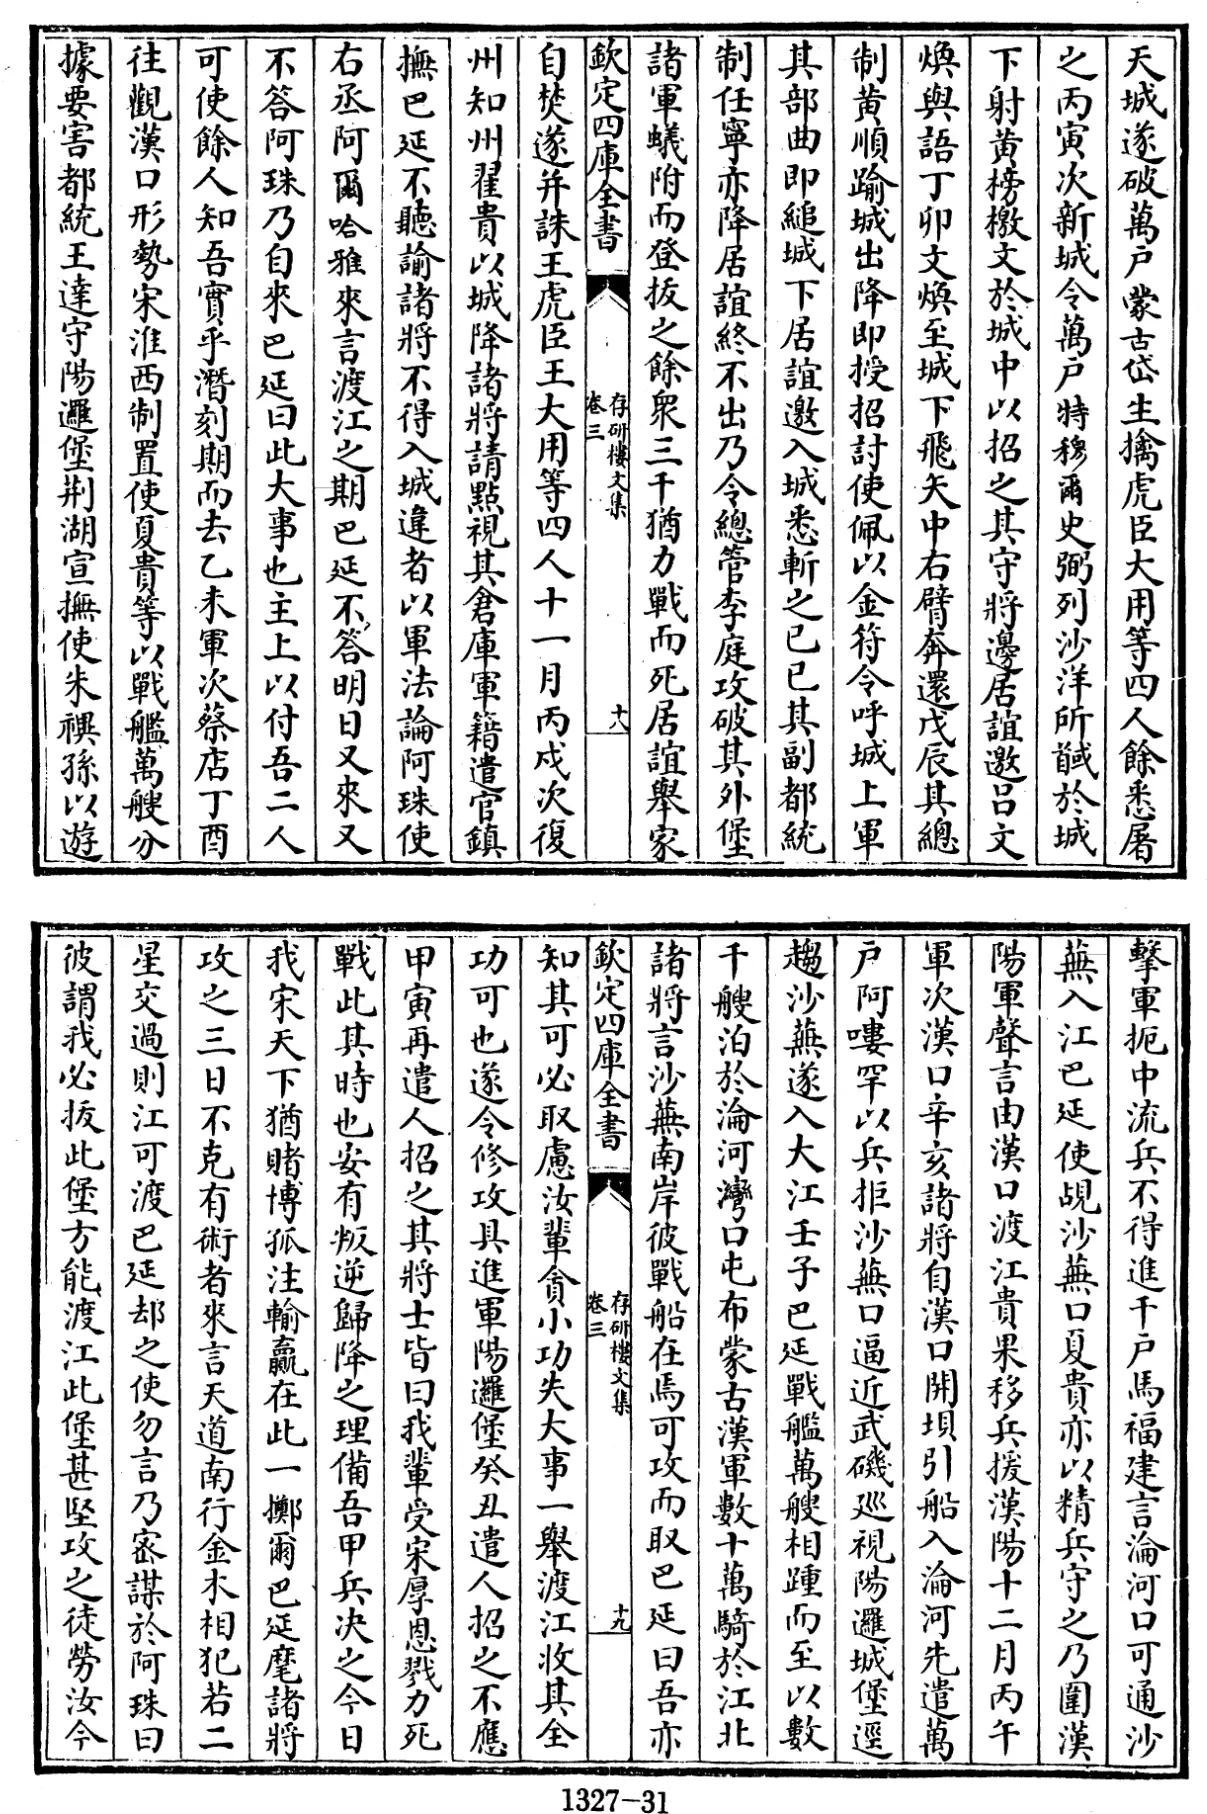 天城遂破萬戶蒙古岱生擒虎臣大用等四人餘悉屠
之丙寅次新城令萬戶特穆爾史弼列沙洋所馘於城
下射黄榜檄文於城中以招之其守將邊居誼邀吕文
煥與語丁卯文煥至城下飛矢中右臂奔還戊辰其總
制黄順踰城出降即授招討使佩以金符令呼城上軍
其部曲即縋城下居誼邀入城悉斬之己巳其副都統
制任寧亦降居誼終不出乃令總管李庭攻破其外堡
諸軍蟻附而登拔之餘衆三千猶力戰而死居誼舉家
欽定四庫全書
存研樓文集
卷三
十八
自焚遂并誅王虎臣王大用等四人十一月丙戍次復
州知州翟貴以城降諸將請點視其倉庫軍籍遣官鎮
撫巴延不聽諭諸將不得入城違者以軍法論阿珠使
右丞阿爾哈雅來言渡江之期巴延不答明日又來又
不答阿珠乃自來巴延曰此大事也主上以付吾二人
可使餘人知吾實乎潛刻期而去乙未軍次蔡店丁酉
往觀漢口形勢宋淮西制置使夏貴等以戰艦萬艘分
據要害都統王達守陽邏堡荆湖宣撫使朱禩孫以遊
擊軍扼中流兵不得進千戶馬福建言淪河口可通沙
蕪入江巴延使覘沙蕪口夏貴亦以精兵守之乃圍漢
陽軍聲言由漢口渡江貴果移兵援漢陽十二月丙午
軍次漢口辛亥諸將自漢口開壩引船入淪河先遣萬
戶阿嘍罕以兵拒沙蕪口逼近武磯巡視陽邏城堡逕
趨沙蕪遂入大江壬子巴延戰艦萬艘相踵而至以數
千艘泊於淪河灣口屯布蒙古漢軍數十萬騎於江北
諸將言沙蕪南岸彼戰船在焉可攻而取巴延曰吾亦
欽定四庫全書
存研樓文集
卷三
十九
知其可必取慮汝輩貪小功失大事一舉渡江收其全
功可也遂令修攻具進軍陽邏堡癸丑遣人招之不應
甲寅再遣人招之其將士皆曰我輩受宋厚恩戮力死
戰此其時也安有叛逆歸降之理備吾甲兵决之今日
我宋天下猶賭博孤注輸贏在此一擲爾巴延麾諸將
攻之三日不克有術者來言天道南行金木相犯若二
星交過則江可渡巴延却之使勿言乃密謀於阿珠曰
彼謂我必拔此堡方能渡江此堡甚堅攻之徒勞汝今
1327-31